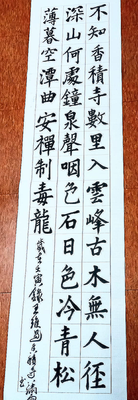 不知香積寺數里入雲峰古木無人徑
深山何處鐘泉聲咽危石日色冷青松
薄暮空潭曲安禪制毒龍
歲在壬寅錄王維過香積寺